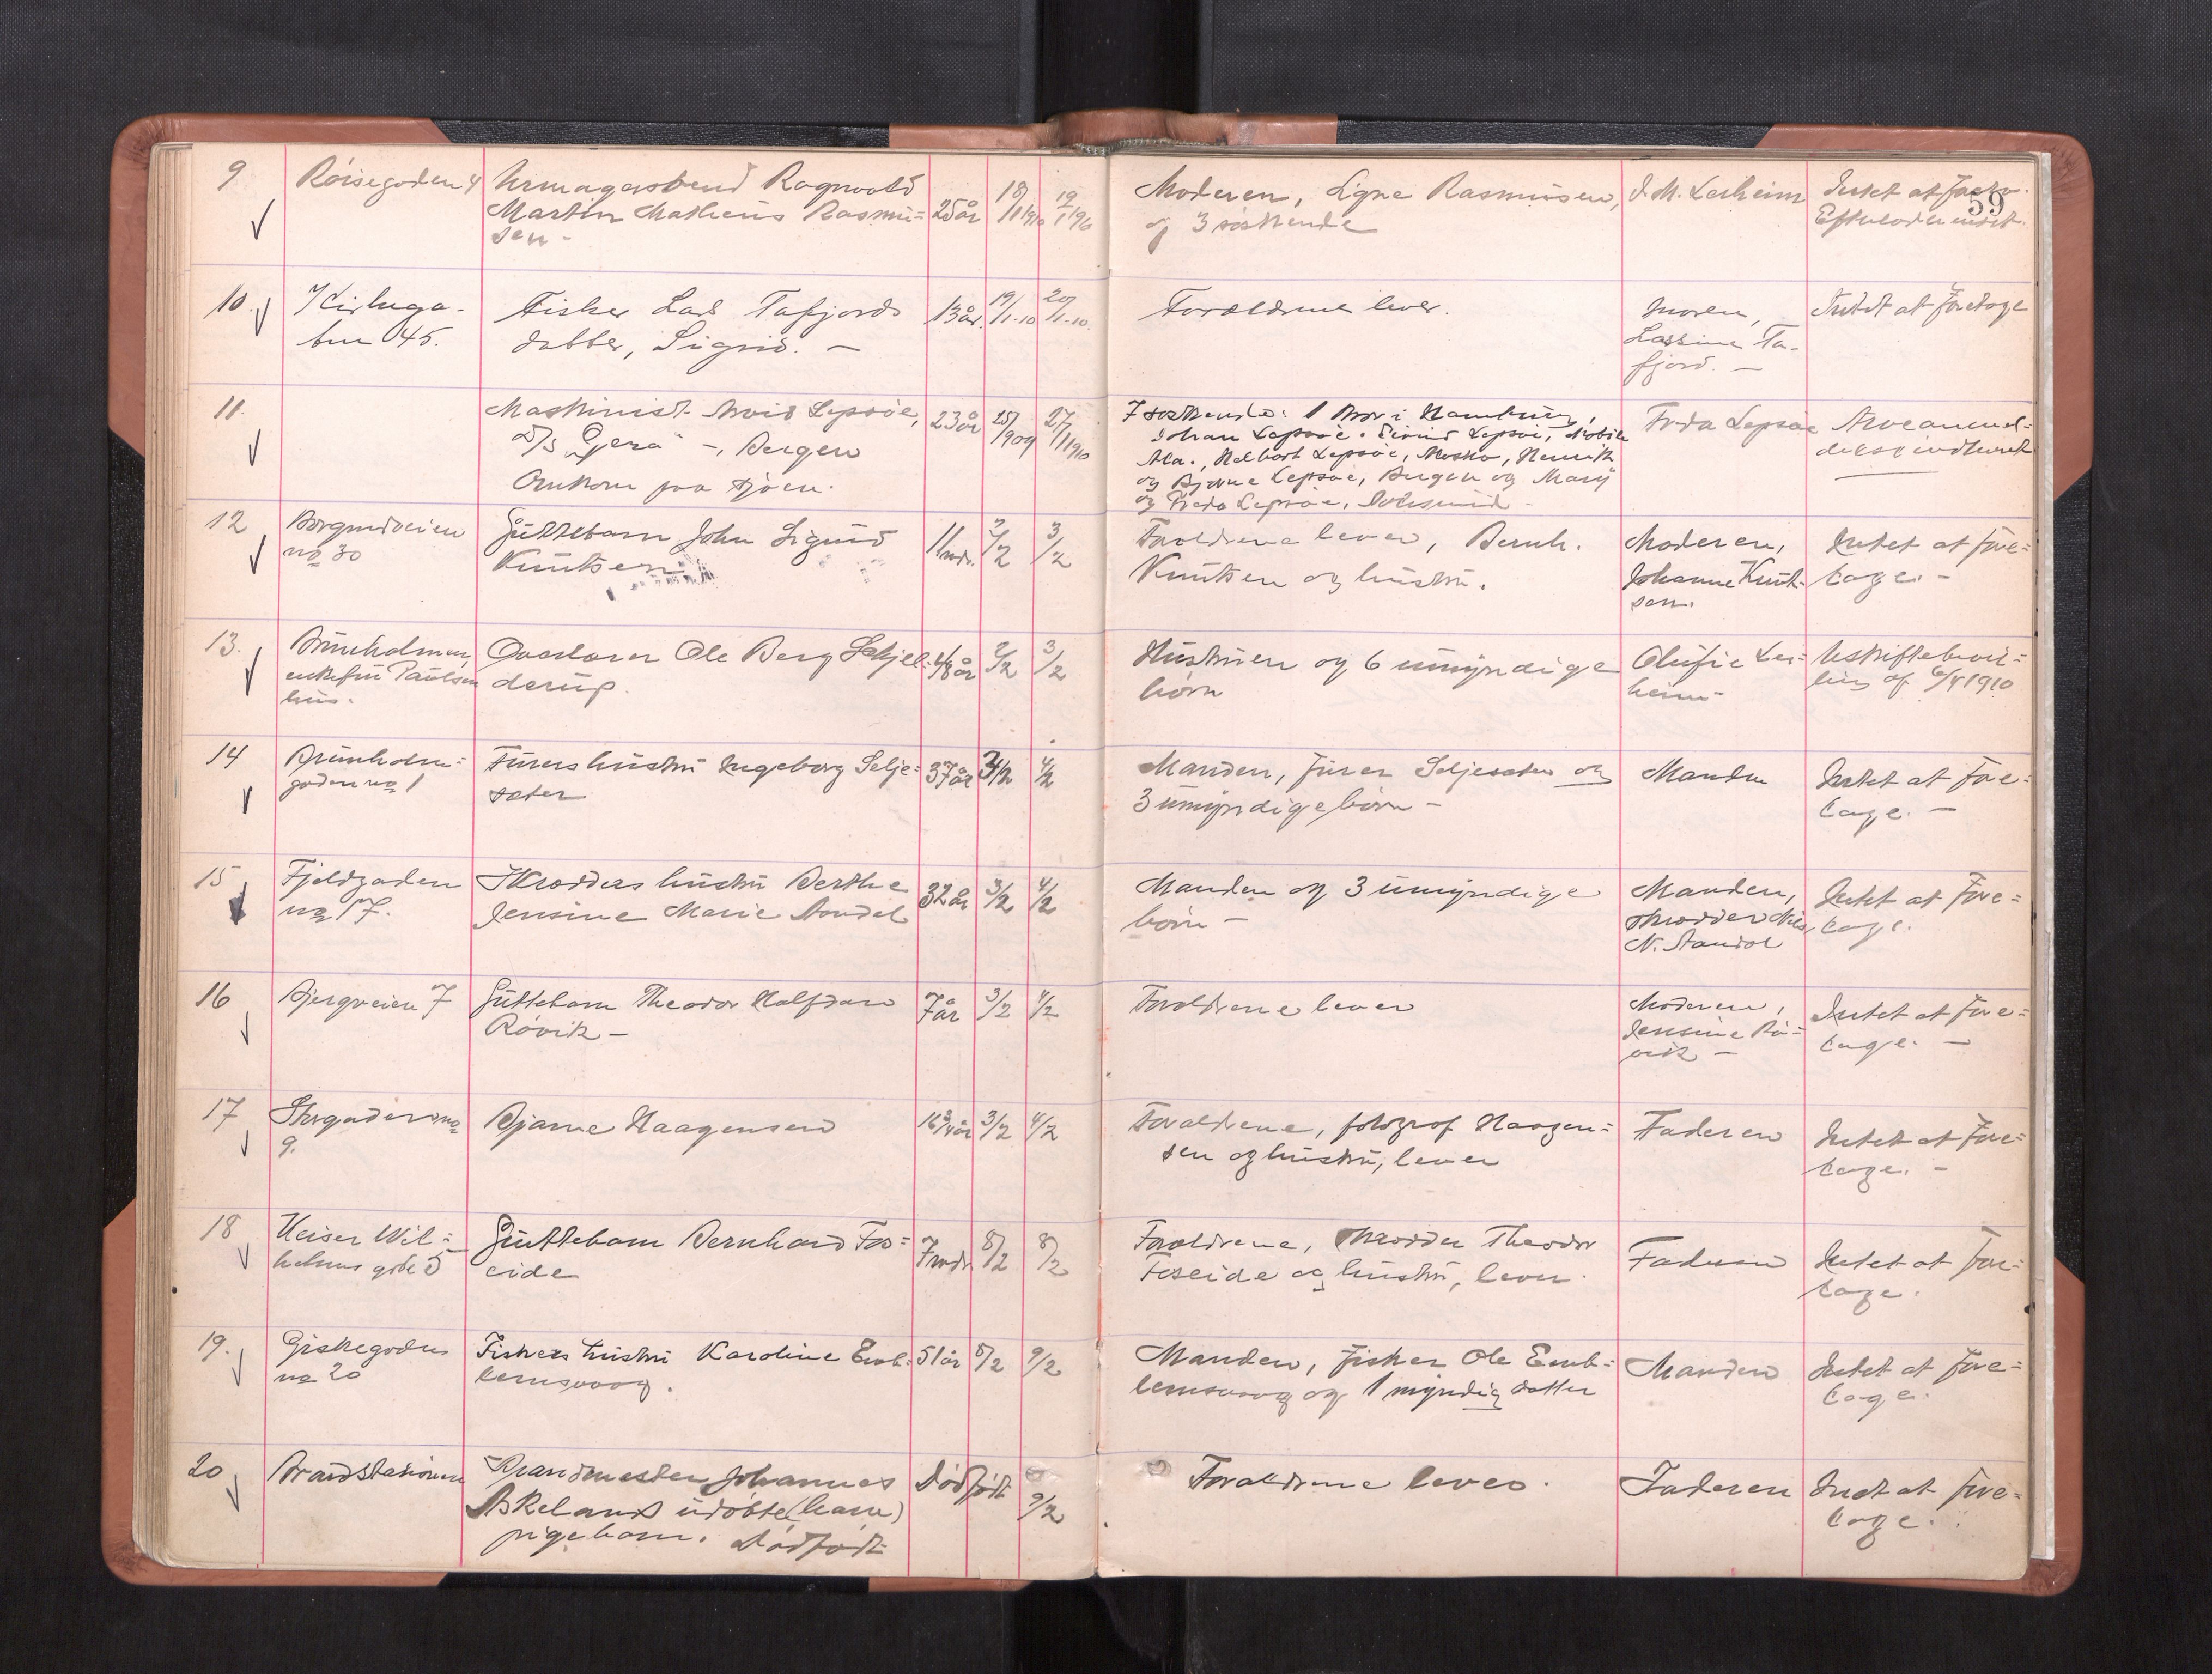 59
9 Röisegaden 4 Urmagersvend Ragnvald
Martin Matheus Rasmu=
sen - 25 år 18/1 1910 19/1 1910
Moderen, Signe Rasmusen,
og 3 søskende
J. M. Lerheim
Intet at foreta.
Efterlod sig intet.
10. Kirkega-
ten 45.
Fisker Lars Tafjords
datter, Sigrid. -
13 år. 19/1-10 20/1-10.
Forældrene lever.
Moren,
Lassine Ta-
fjord. -
Intet at foretage
11. Maskinist Arvid Lepsöe,
D/S "Gera" -, Bergen
Omkom paa sjöen.
23 år 1909 27/1 1910
7 søskende: 1 bror i Hamburg,
Johan Lepsöe. Eivind Lepsöe, Mobile
Ala., Helbart Lepsöe, Henrik
og Bjarne Lepsöe, Bergen og Marij
og Frida Lepsöe,
Frida Lepsöe
Arveanmel=
delse indleveret
12 Borgundveien
no 30
Guttebarn John Sigurd
Knutsen
11 mdr. 2/2 3/2
Forældrene lever, Bernh.
Knutsen og hustru.
Moderen,
Johanne Knut-
sen.
Intet at fore=
tage. -
13. Brunholmen,
enkefru Paulsen
hus.
Ole Berg Schjel=
derup.
48 år 2/2 3/2
Hustruen og 6 umyndige
börn
Olufie Ler=
heim -
Uskiftebevil=
ling af 6/4 1910
14 Brunholm=
gaden no 1
Furers hustru Ingeborg Selje=
sæter
37 år 3/2 4/2
Manden, furer Seljesæter og
3 umyndige börn -
Manden
Intet at fore=
tage. -
15 Fjeldgaden
no 17.
Skrædders hustru Berthe
Jensine Marie Standal
32 år 3/2 4/2
Manden og 3 umyndige
börn -
Manden,
skrædder Nils
N. Standal
Intet at fore=
tage.
16 Bjergveien 7
Guttebarn Theodor Halfdan
Rövik -
7 år 3/2 4/2
Forældrene lever
Moderen,
Jensine Rö=
vik -
Intet at fore=
tage. -
17 Storgaden no
9.
Bjarne Haagensen
16 3/4 år 3/2 4/2
Forældrene, fotograf Haagen=
sen og hustru, lever
Faderen
Intet at fore=
tage. -
18 Keiser Wil=
helms gate 5
Guttebarn Bernhard Fos=
eide
7 mdr 8/2 8/2
Forældrene, skrædder Theodor
Foseide og hustru, lever.
Faderen
Intet at fore=
tage.
19. Giskegaden
no 20
Fiskers hustru Karoline Emb=
lemsvaag.
51 år 8/2 9/2
Manden, fisker Ole Emb=
lemsvaag og 1 myndig datter
Manden
Intet at fore=
tage.
20 Brandstationen
Brandmester Johannes
Askelands udöbte (barn)
pigebarn. Dödfödt
Dödfödt 9/2
Forældrene lever.
Faderen
Intet at fore=
tage.